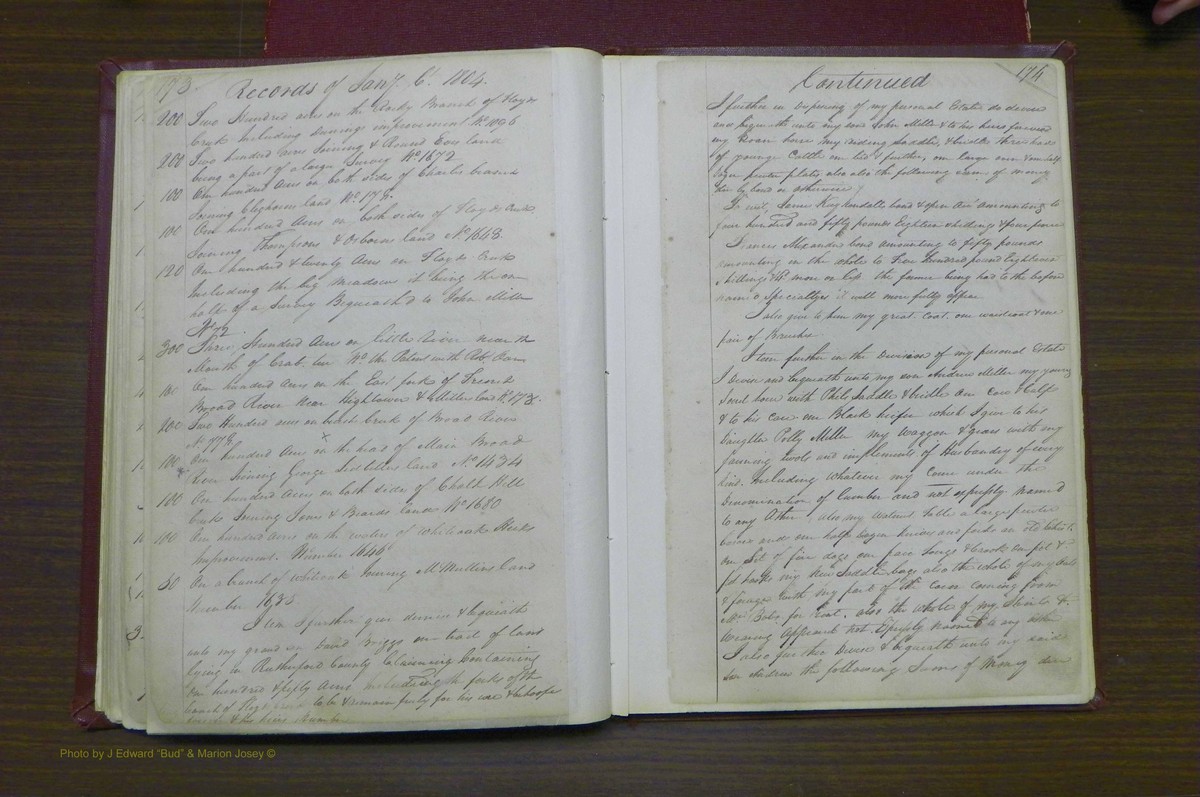 173 Records of Jany. 6. 1804.
200 Two Hundred acres on the Branch of Floyds
Creek Including improvement No 1096
200 Two hundred acres Joining & Round land
being a part of a large Survey No 1672
100 One hundred Acres on both sides of Charles
Joining Cleghorns land No 178.
100 One hundred Acres on both sides of Floyds Creek
Joining Thompsons & Osborns land No 1648.
120 One hundred & twenty Acres on Floyds Creek
Including the big meadows it being the one
half of a Survey Bequeath'd to John Miller
No 72.
300 Three Hundred Acres on little River near the
Mouth of Crab the Patent with Rob.
100 One hundred Acres on the East fork of French
Broad River Near Hightower & Millers land No 173.
200 Two Hundred acres on Creek of Broad River
No 778.
100 One hundred Acres on the head of Main Broad
River Joining George land No 1434
100 One hundred Acres on both sides of Chalk Hill
Creek Joining Jones & Beards lands No 1680
100 One hundred Acres on the waters of Whiteoak Hicks
Improvement. Number 1646
50 On a branch of Whiteoak Joining McMullins land
Number 1635
Item I further give devise & bequeath
unto my grand son David Briggs one tract of land
lying in Rutherford County Containing
One hundred & fifty Acres including the forks of the
branch of to be & remain for his use & behoofe
& his heirs
Continued 174
I further in Disposing of my personal Estate do devise
and bequeath unto my son John Miller & to his heirs forever
my Roan horse my riding saddle & bridle three head
of young Cattle on his further, one large one & one half
dozen pewter plates also also the following sum of money
due by bond or otherwise
To wit, land & open Act. amounting to
four hundred and fifty pounds Eighteen shillings & four pence
Francis Alexander bond amounting to fifty pounds
amounting in the whole to Five hundred pound Eighteen
shillings &c more or less the former being had to the before
named Specialtys it will more fully appear
I also give to him my great Coat. one waistcoat & one
pair of Breeches
Item further in the Division of my personal Estate
I Devise and bequeath unto my son Andrew Miller my young
horse with Saddle & bridle One Cow & Calf
& to his care one Black heifer which I give to his
Daughter Polly Miller My Waggon & gears with my
farming tools and implements of Husbandry of every
kind. Including whatever my Come under the
Denomination of Lumber and not expressly named
to any Other, also my Walnut table a large pewter
bason and one half dozen knives and forks an old
One Set of fire dogs one pair tongs & Crook one pot &
my New Saddle bags also the whole of my Oats
& forage with my part of the Corn coming from
for Rent. also the whole of my Shirts &
Wearing Apparel not Expressly named to any other
I also further Devise & bequeath unto my said
Son Andrew the following Sums of Money due
Photo by J Edward "Bud" & Marion Josey ©